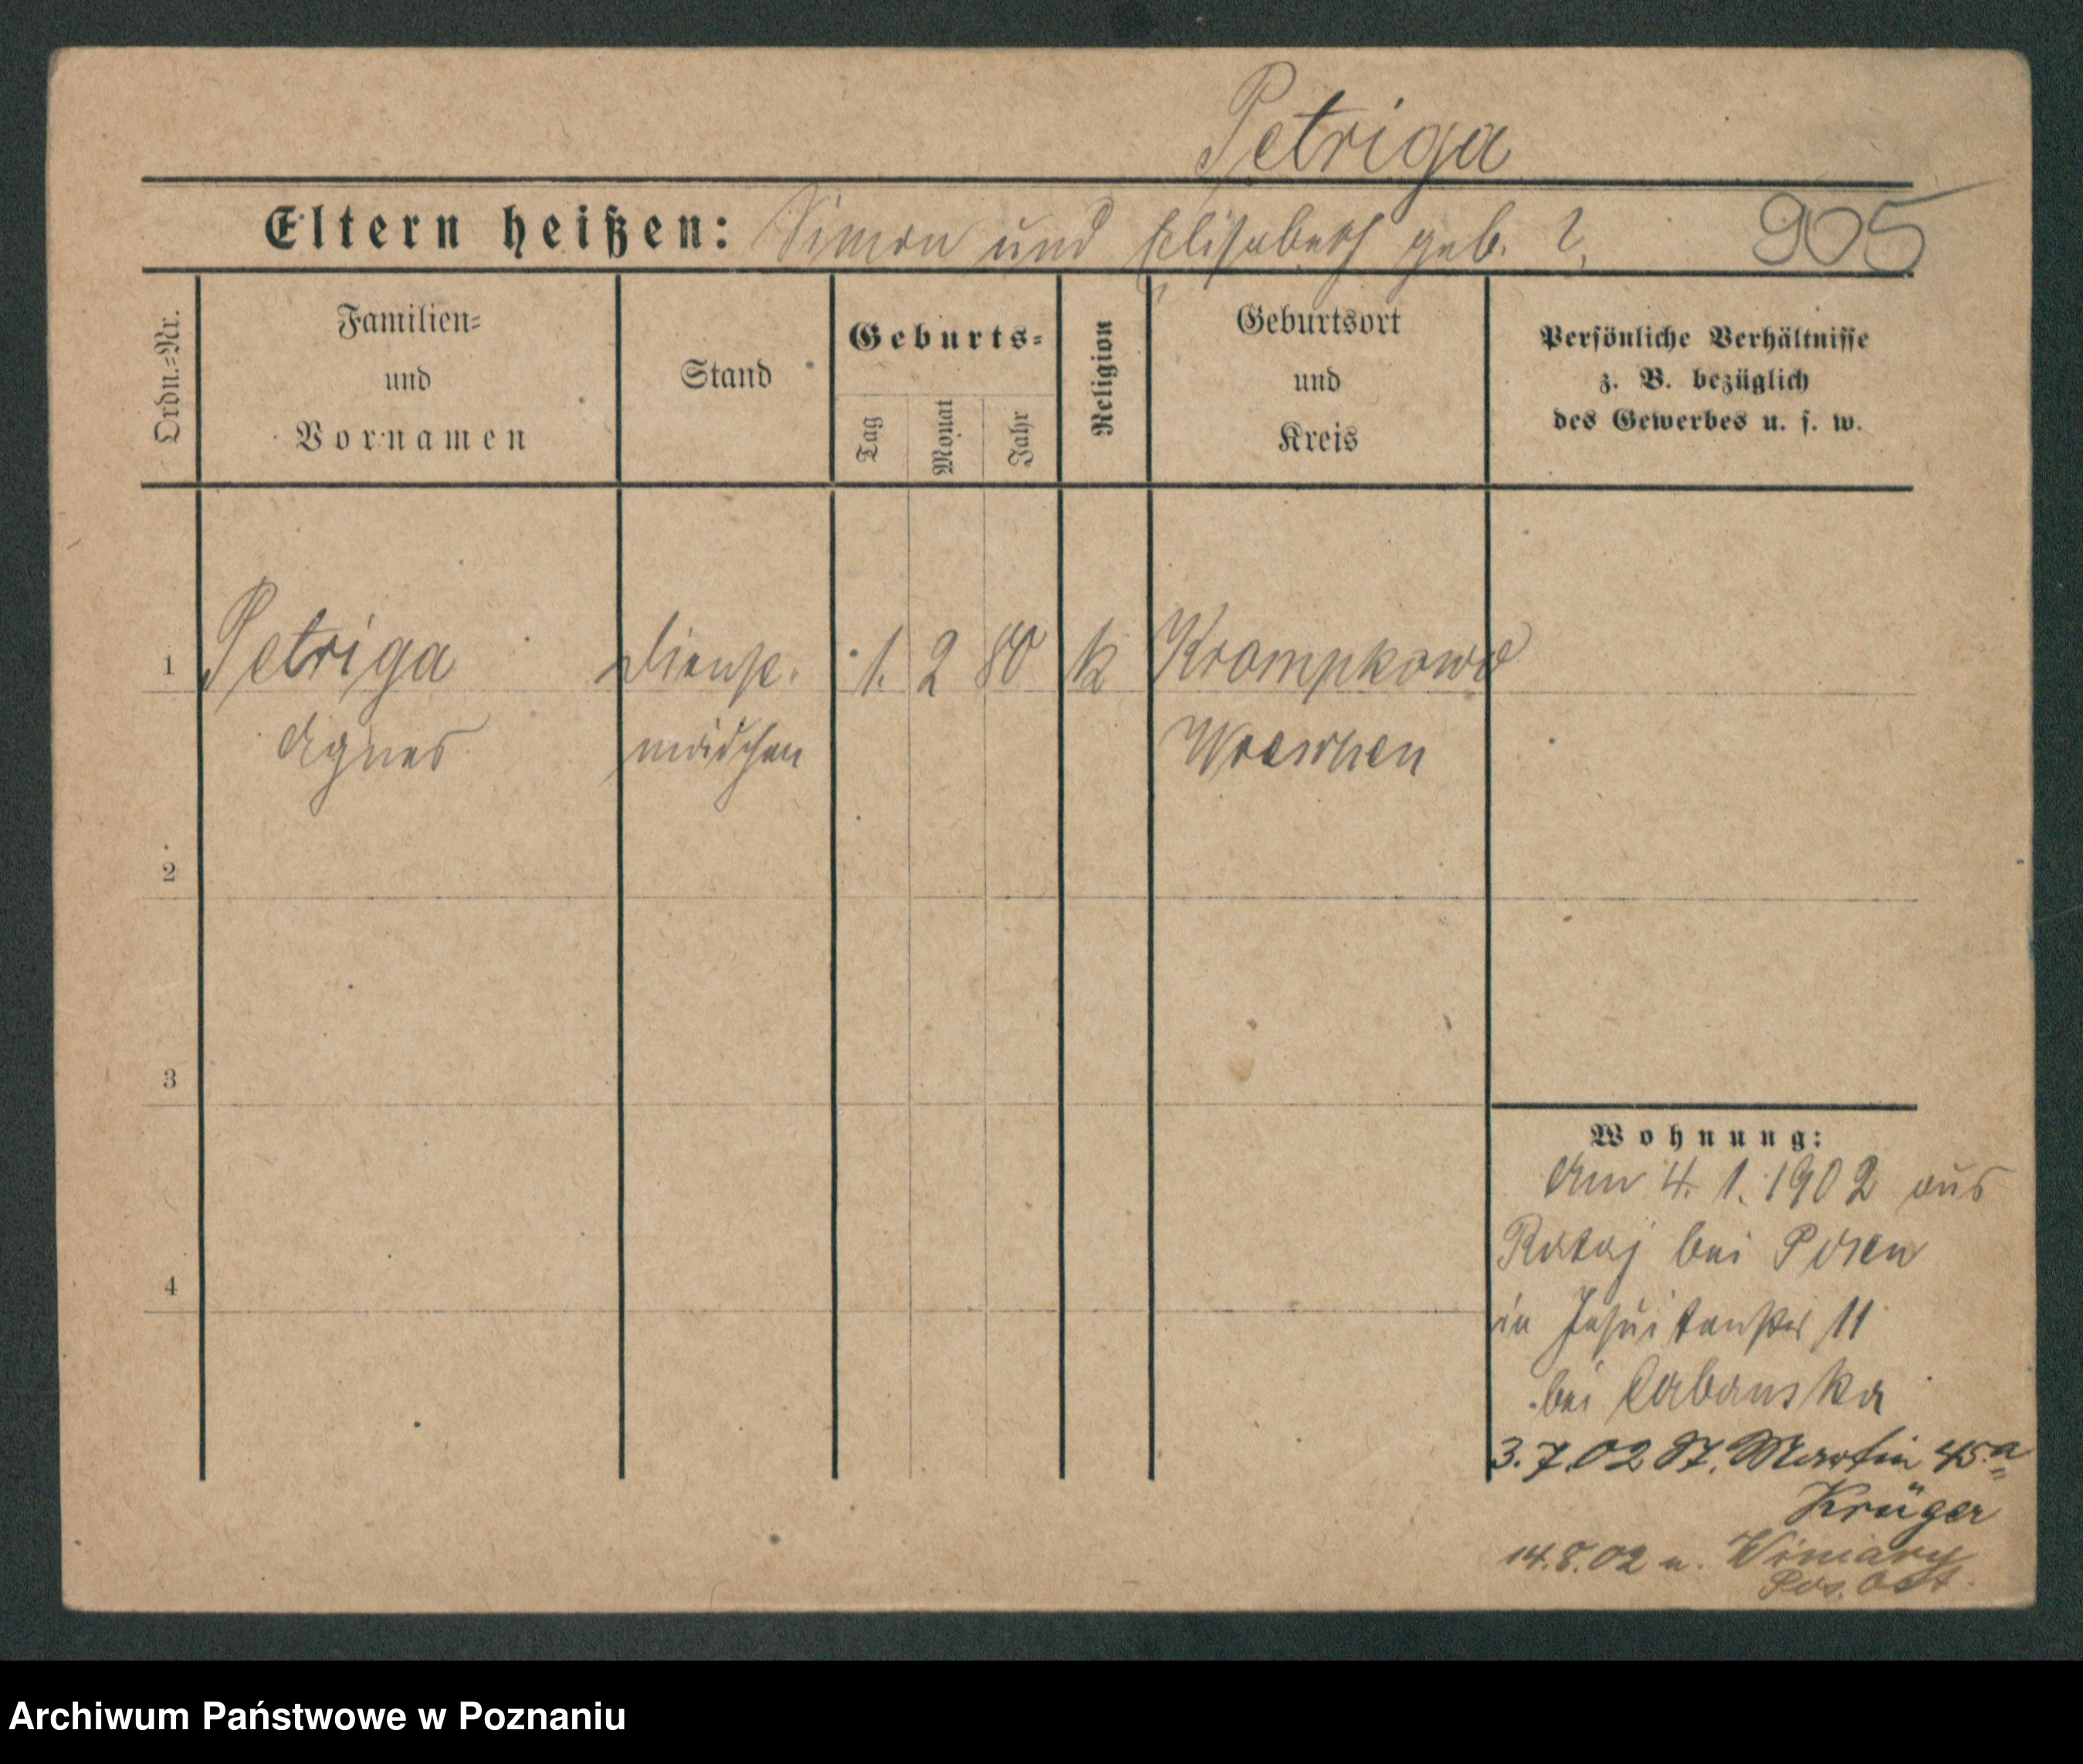 Petriga
Eltern heißen: Simon und Elisabeth geb. ?
905
Ordn.=Nr.
Familien=
und
Vornamen
Stand
Geburts=
Tag
Monat
Jahr
Religion
Geburtsort
und
Kreis
Persönliche Verhältnisse
z. B. bezüglich
des Gewerbes u. s. w.
1 Petriga Dienst. 1. 2 80 k Krompkowo
Agnes mädchen Wreschen
2
3
4
Wohnung:
Am 4. 1. 1902 aus
Rataj bei Posen
in Jesuitenstr 11
bei Cabanska
3.7.02 St. Martin 45a
Krüger
14.8.02 n. Winiary
Pos. Ost
Archiwum Państwowe w Poznaniu